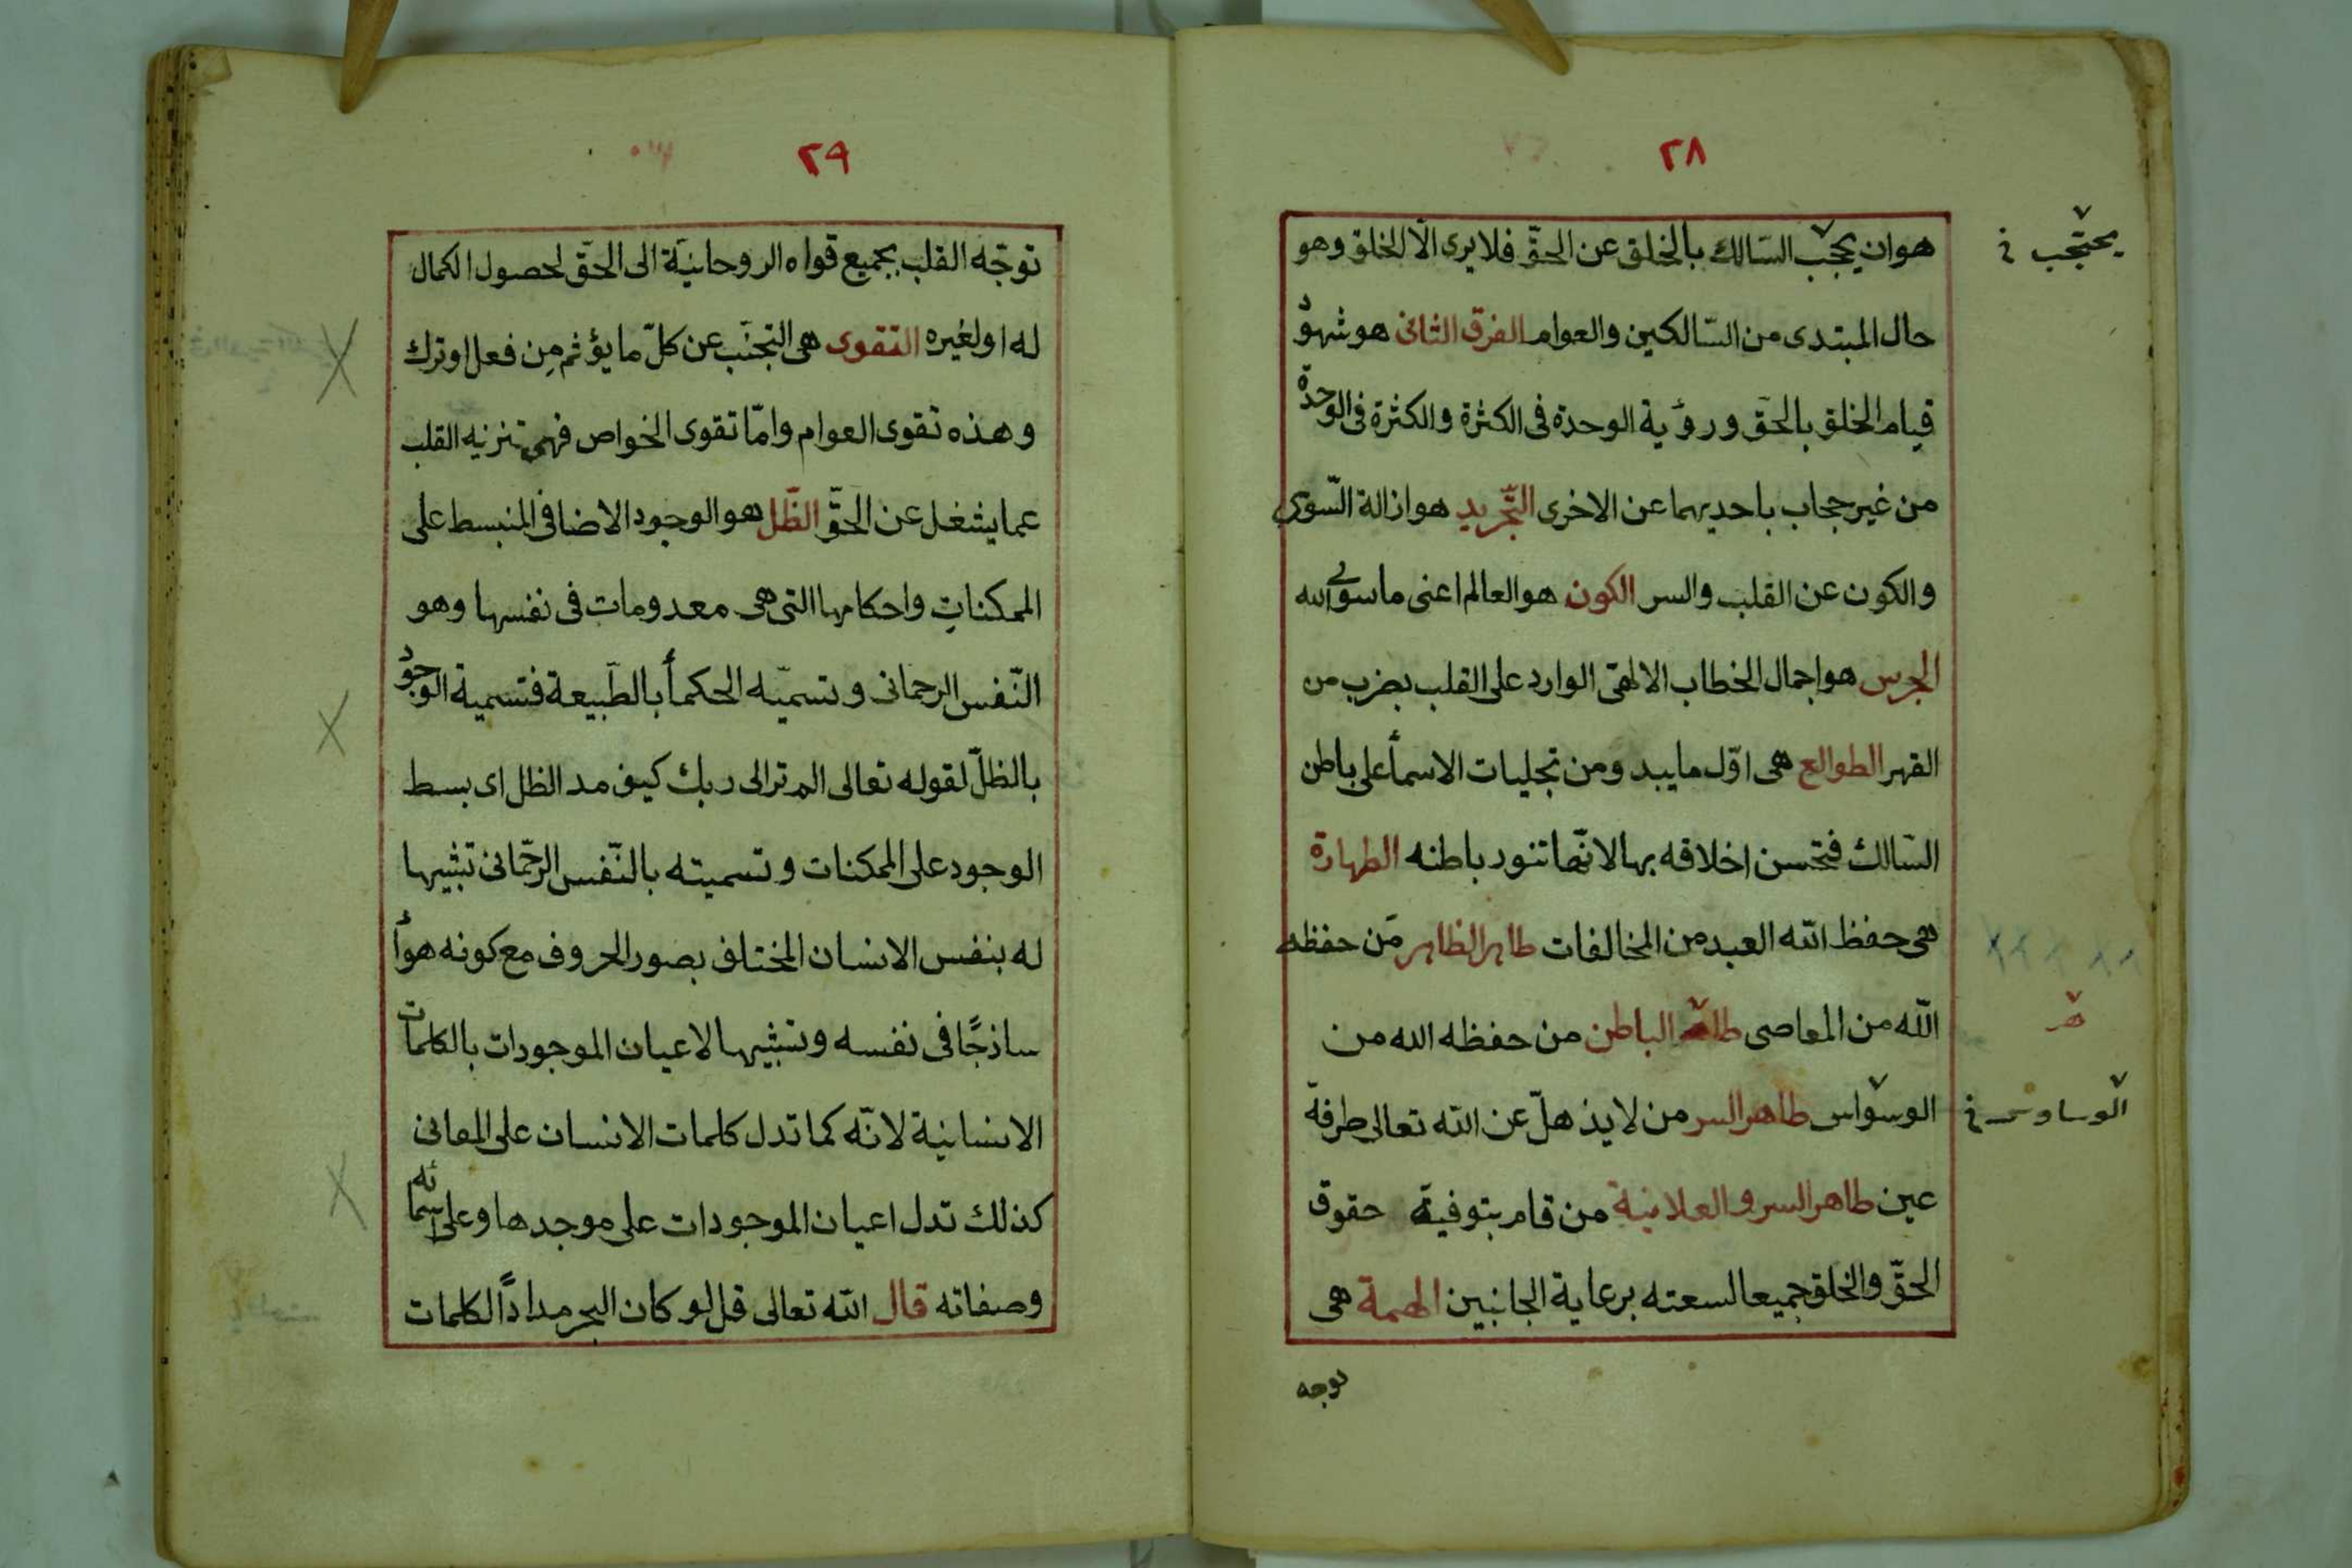 ٢٨
هو ان يحجب السّالك بالخلق عن الحقّ فلا يرى الّا الخلق وهو
يحتجب خ
حال المبتدى من السّالكين والعوام الفرق الثانى هو شهود
قيام الخلق بالحقّ ورؤية الوحدة فى الكثرة والكثرة فى الوحدة
من غير حجاب باحديهما عن الاخرى التّجريد هو ازالة السّوى
والكون عن القلب والسر الكون هو العالم اعنى ما سوى الله
الجرس هو اجمال الخطاب الالهى الوارد على القلب بضرب من
القهر الطوالع هى اوّل ما يبدو من تجليات الاسمأ على باطن
السّالك فتحسن اخلاقه بها لانّها تنور باطنه الطهارة
هى حفظ الله العبد من المخالفات طاهر الظاهر مَن حفظه
الله من المعاصى طاهر الباطن من حفظه الله من
هر
الوسواس طاهر السر من لا يذهلّ عن الله تعالى طرفة
الوساوس خ
عين طاهر السر والعلانية من قام بتوفية حقوق
الحقّ والخلق جميعا لسعته برعاية الجانبين الهمة هى
توجه
٢٩
توجّه القلب بجميع قواه الروحانيّة الى الحقّ لحصول الكمال
له او لغيره التقوى هى التجنّب عن كلّ ما يؤثم مِن فعل او ترك
وهذه تقوى العوام وامّا تقوى الخواص فهى تنزيه القلب
عما يشغل عن الحقّ الظّل هو الوجود الاضافى المنبسط على
الممكناتِ واحكامها التى هى معدومات فى نفسها وهو
النّفس الرحمانى وتسميّه الحكمأ بالطّبيعة فتسمية الوجود
بالظلّ لقوله تعالى الم تر الى ربك كيف مد الظل اى بسط
الوجود على الممكنات وتسميته بالنّفس الرحّمانى تشبيها
له بنفس الانسان المختلف بصور الحروف مع كونه هوأ
ساذجًا فى نفسه وتشبيها لاعيان الموجودات بالكلمات
الانسانية لانّه كما تدل كلمات الانسان على المعانى
كذلك تدل اعيان الموجودات على موجدها وعلى اسمائه
وصفاته قال الله تعالى قل لو كان البحر مدادًا لكلمات